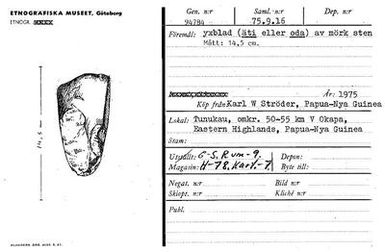 ETNOGRAFISKA MUSEET, Göteborg
ETNOGR.
14,5 cm
Gen. n:r
94784
Saml. n:r
75.9.16
Dep. n:r
Föremål: yxblad (äti eller oda) av mörk sten
Mått: 14,5 cm.
År: 1975
Köp från Karl W Ströder, Papua-Nya Guinea
Lokal: Tunukau, omkr. 50-55 km V Okapa,
Eastern Highlands, Papua-Nya Guinea
Stam:
Utställt: G-S. Rum-9.
Depon:
Magasin: H-78. Kart.-7.
Byte till:
Negat. n:r
Bild n:r
Skiopt. n:r
Kliché n:r
Publ.